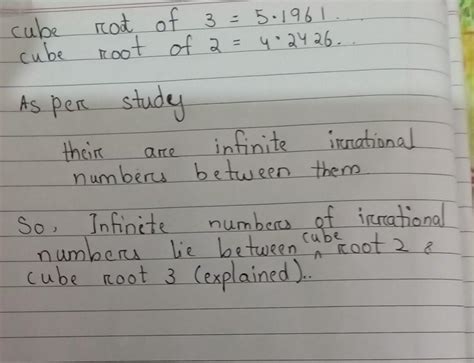 cube root of 3 = 5.1961...
cube root of 2 = 4.2426...
As per study
their are infinite irrational
numbers between them
So, Infinite numbers of irrational
numbers lie between cube root 2 &
cube root 3 (explained)..